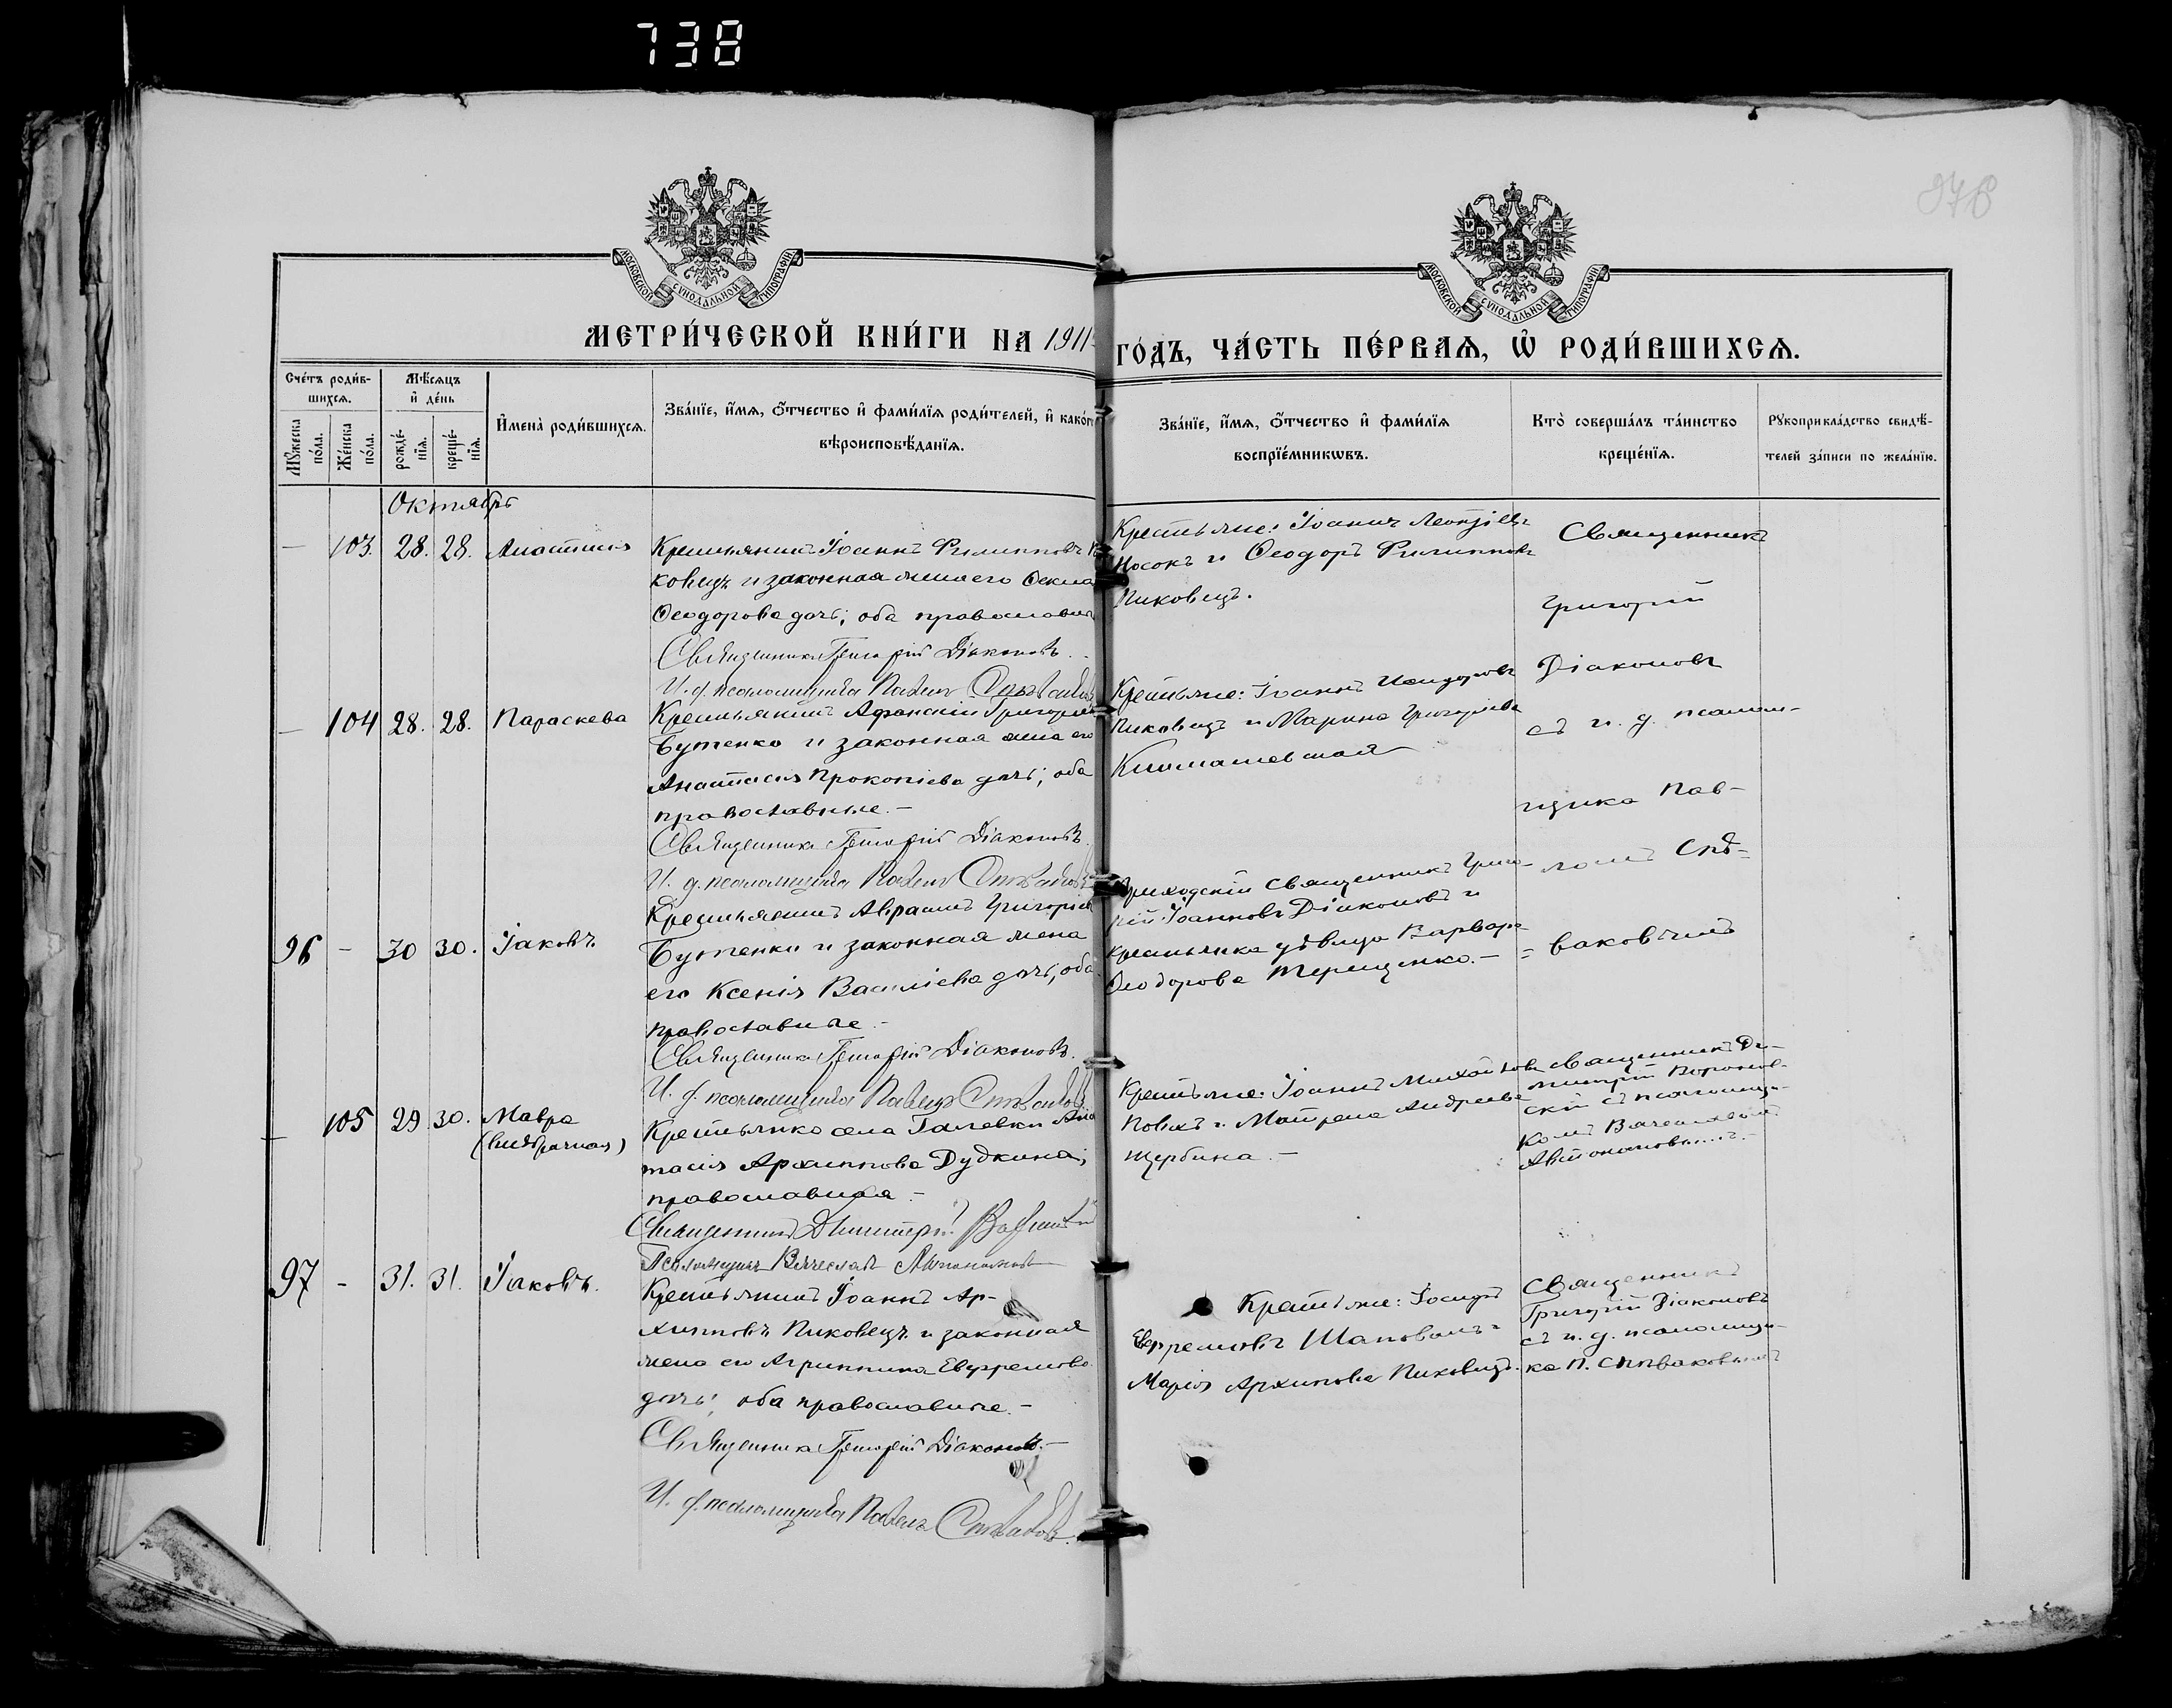 738
876
МОСКОВСКОЙ СѴНОДАЛЬНОЙ ТИПОГРАФІИ
МОСКОВСКОЙ СѴНОДАЛЬНОЙ ТИПОГРАФІИ
МЕТРИ́ЧЕСКОЙ КНИ́ГИ НА 1911
ГО́ДЪ, ЧА́СТЬ ПЕ́РВАѦ, Ѽ РОДИ́ВШИХСѦ.
Сче́тъ роди́в-
шихсѧ.
Мꙋ́жеска
по́ла.
Же́нска
по́ла.
Мѣ́сѧцъ
и҆ де́нь
рожде́-
нїѧ.
креще́-
нїѧ.
И҆мена̀ роди́вшихсѧ.
Зва́нїе, и҆́мѧ, ѻ҆́тчество и҆ фами́лїѧ роди́телей, и҆ како́гѡ
вѣроисповѣ́данїѧ.
Зва́нїе, и҆́мѧ, ѻ҆́тчество и҆ фами́лїѧ
воспрїе́мникѡвъ.
Кто̀ соверша́лъ та́инство
креще́нїѧ.
Рꙋкоприкла́дство свидѣ́-
телей за́писи по жела́нїю.
Октябрь
— 103. 28. 28. Анастасія
Крестьянинъ Іоаннъ Филипповъ Пи
ковецъ и законная жена его Фекла
Ѳеодорова дочь; оба православные
Священникъ Григорій Діаконовъ.
И. д. псаломщика Павелъ Спѣваковъ
Крестьяне: Іоаннъ Леонтіевъ
Носокъ и Ѳеодоръ Филипповъ
Пиковецъ.
Священникъ
Григорій
Діаконовъ
съ и. д. псалом-
щика Пав-
ломъ Спѣ-
ваковымъ
— 104 28. 28. Параскева
Крестьянинъ Афанасій Григорьевъ
Бутенко и законная жена его
Анастасія Прокопіева дочь; оба
православные. —
Священникъ Григорій Діаконовъ.
И. д. псаломщика Павелъ Спѣваковъ
Крестьяне: Іоаннъ Исидоровъ
Пиковецъ и Марина Григоріева
96 — 30 30. Іаковъ.
Крестьянинъ Аврамъ Григоріевъ
Бутенко и законная жена
его Ксенія Василіева дочь; оба
православные. —
Священникъ Григорій Діаконовъ.
И. д. псаломщика Павелъ Спѣваковъ
Приходскій священникъ Григо-
рій Іоанновъ Діаконовъ и
крестьянка дѣвица Варвара
Ѳеодорова Терещенко. —
— 105 29 30. Мавра
(внѣбрачная)
Крестьянка села Галевки Анас
тасія Архиппова Дудкина;
православная —
Священникъ Димитрій
Псаломщикъ Вячеславъ Автономовъ
Крестьяне: Іоаннъ Михайловъ
Повхъ и Матрена Андреева
Щербина. —
Священникъ Ди-
митрій Воронов-
скій съ псаломщи-
комъ Вячеславомъ
Автономовымъ. —
97 — 31. 31. Іаковъ.
Крестьянинъ Іоаннъ Ар-
хипповъ Пиковецъ и законная
жена его Агриппина Евфремова
дочь; оба православные. —
Священникъ Григорій Діаконовъ. —
И. д. псаломщика Павелъ Спѣваковъ.
Крестьяне: Іосифъ
Евфремовъ Шаповалъ и
Марія Архипова Пиковецъ.
Священникъ
Григорій Діаконовъ
съ и. д. псаломщи-
ка П. Спѣваковымъ